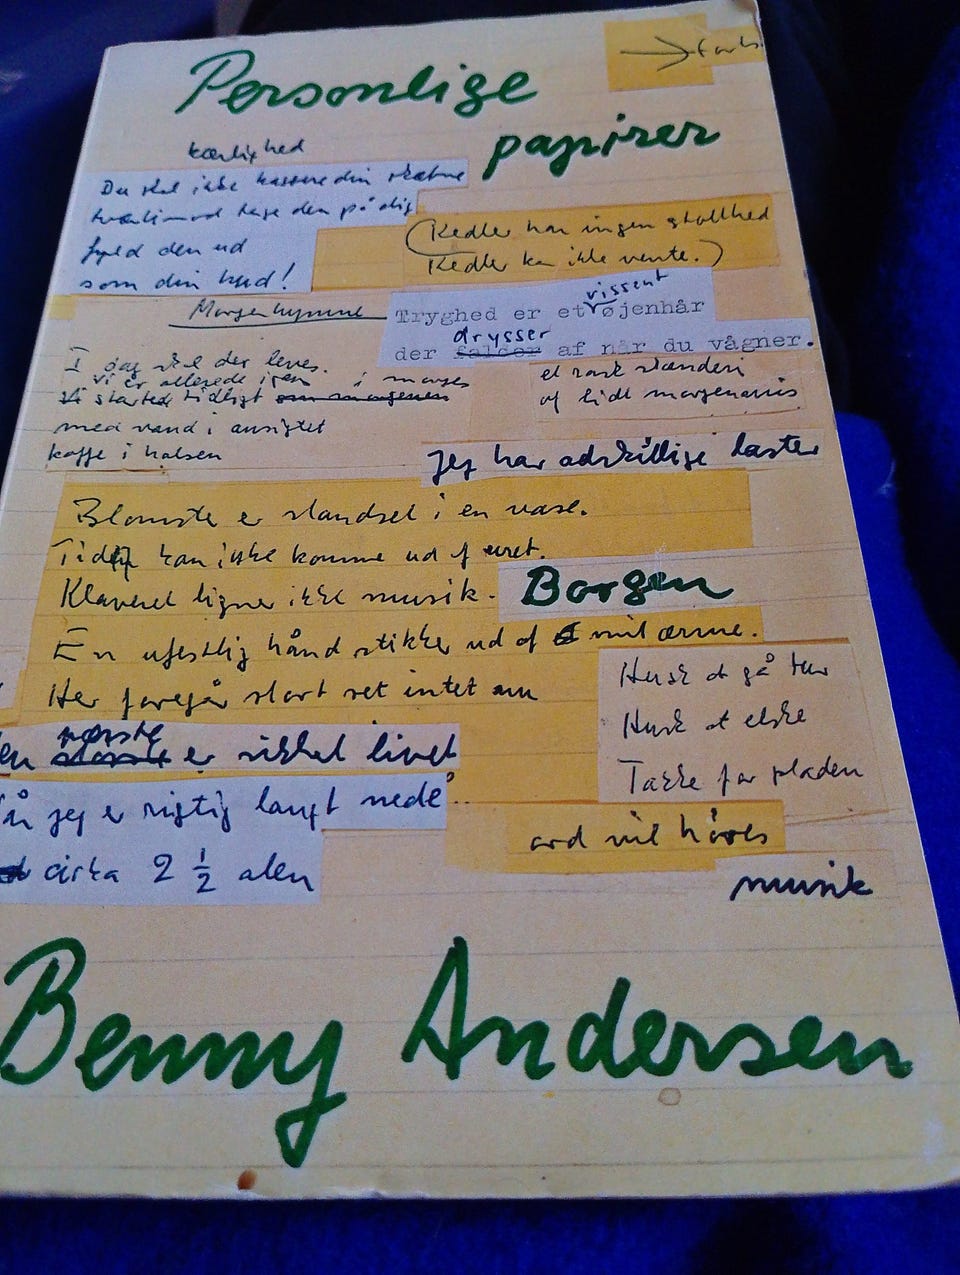 Personlige
papirer
kærlighed
Du skal ikke kassere din skæbne
tværtimod tage den på dig
fyld den ud
som din hud!
(Kedler har ingen
Kedler kan ikke vente.)
Morgenhymne
vissent
Tryghed er et øjenhår
drysser
der falder af når du vågner.
I dag skal der leves.
vi er allerede igen i morges
Vi started tidligt om morgenen
med vand i ansigtet
kaffe i halsen
et rask
af lidt morgenavis
Jeg har adskillige laster
Blomster er standset i en vase.
Tiden kan ikke komme ud af uret.
Klaveret ligner ikke musik.
Borgen
En ufestlig hånd stikker ud af mit ærme.
Her foregår stort set intet
Husk at gå tur
Husk at elske
Takke for pladen
næste
er sikkert livet
jeg er rigtig langt nede..
cirka 2 1/2 alen
ord vil høres
musik
Benny Andersen